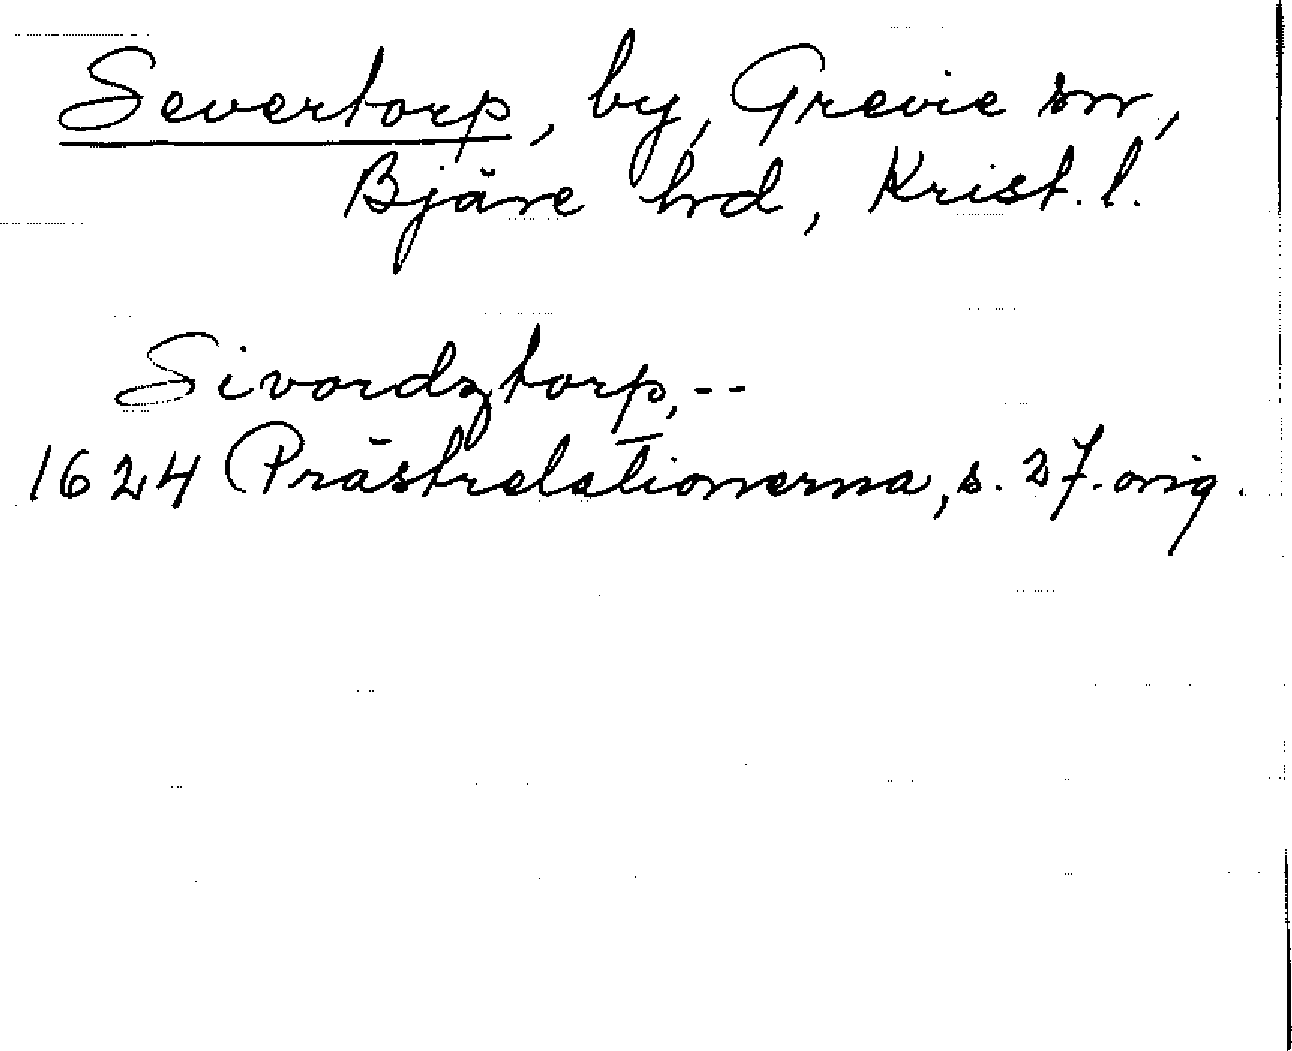 Severtorp, by, Grevie sn,
Bjäre hrd, Krist. l.
Sivordztorp, --
1624 Prästrelationerna, s. 27. orig.